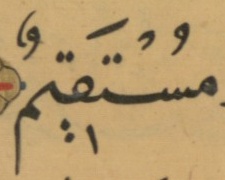 مُسْتَقِيمٌ